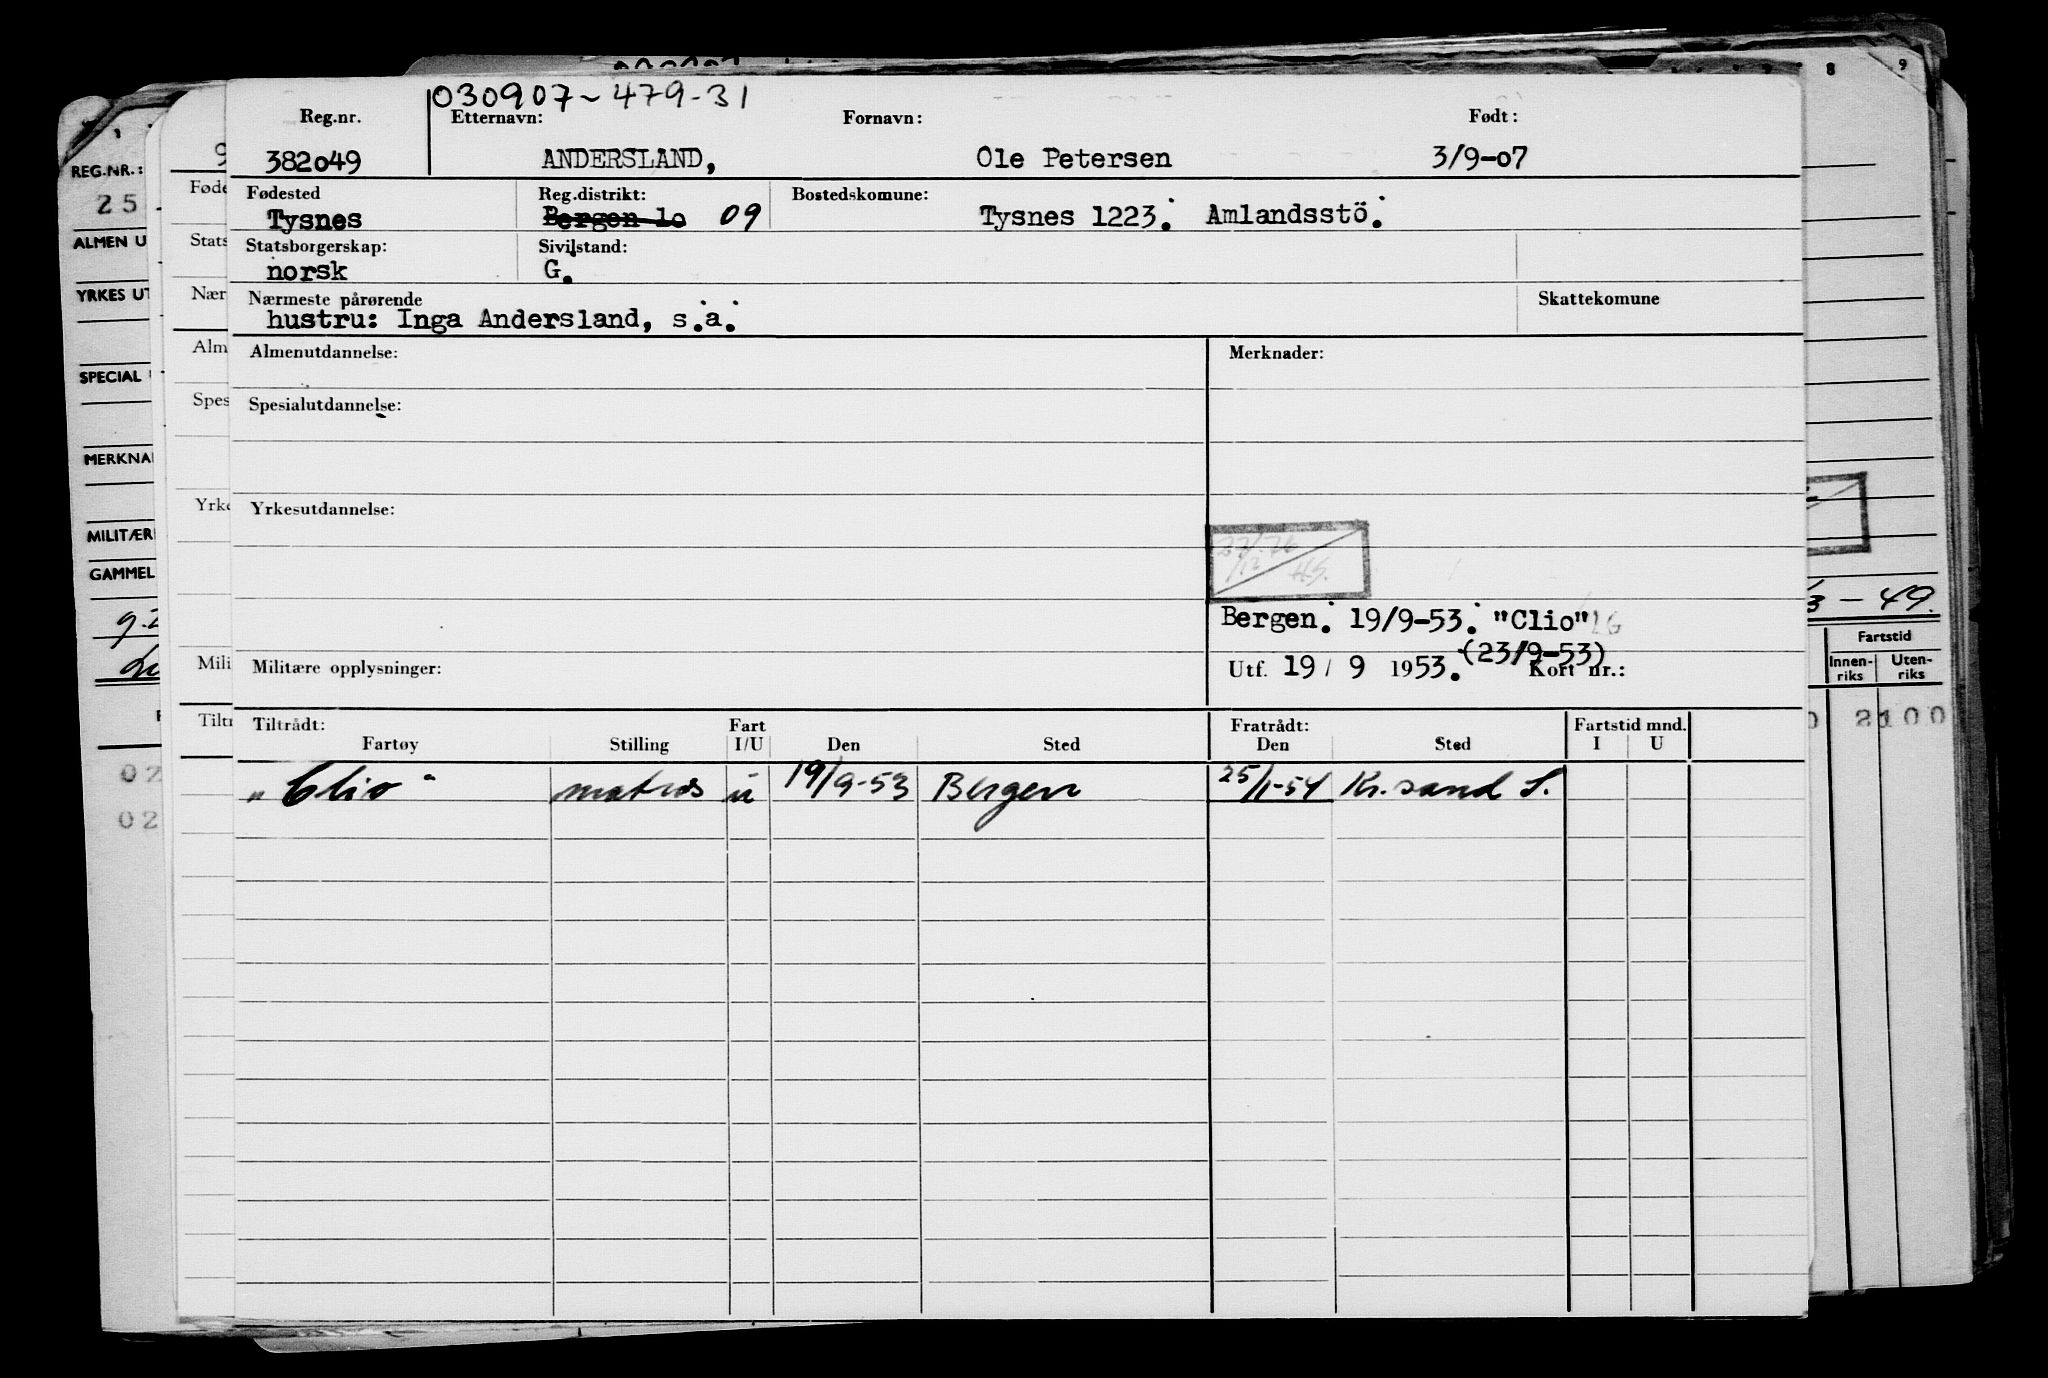 030907-479-31
Reg.nr. Etternavn: Fornavn: Født:
382049 ANDERSLAND, Ole Petersen 3/9-07
Fødested Reg.distrikt: Bostedskomune:
Tysnes Bergen 10 09 Tysnes 1223. Amlandsstö.
Statsborgerskap: Sivilstand:
norsk G.
Nærmeste pårørende Skattekomune
hustru: Inga Andersland, s.a.
Almenutdannelse: Merknader:
Spesialutdannelse:
Yrkesutdannelse:
Bergen. 19/9-53. "Clio"
(23/9-53)
Militære opplysninger: Utf. 19 / 9 1953. Kort nr.:
Tiltrådt: Fart Fratrådt: Fartstid mnd.
Fartøy Stilling I/U Den Sted Den Sted I U
"Clio" matros u 19/9-53 Bergen 25/1-54 Kr.sand S.
REG.NR.:
25
ALMEN U
YRKES UT
SPECIAL
MERKNA
MILITÆR
GAMMEL
02
02
9
Føde
Stats
Nær
Alm
Spes
Yrke
Mili
Tiltr
8 9
3 - 49.
Fartstid
Innen-riks Uten-riks
0 2100